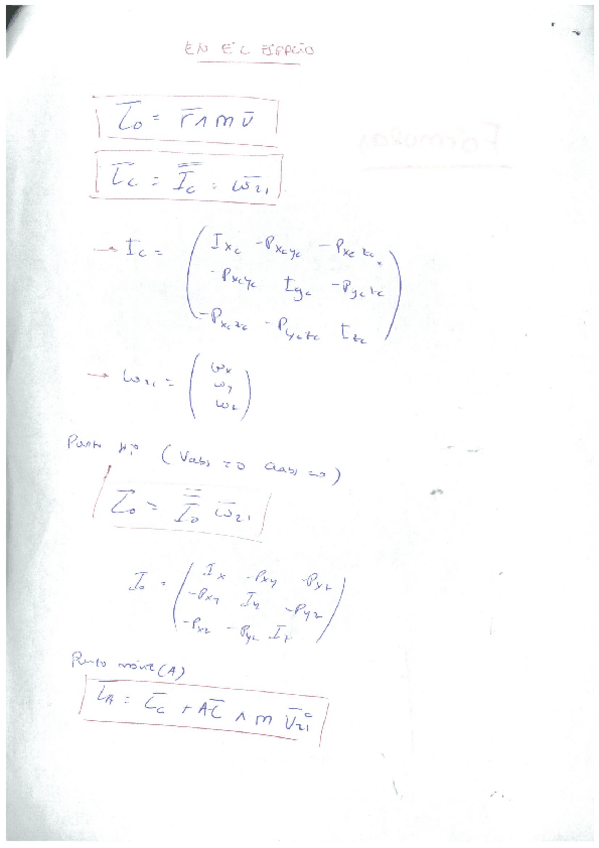 EN EL ESPACIO
L̄o = r̄ ∧ m v̄
L̄c = Īc · ω̄21
→ Ic = ( Ixc -Pxcyc -Pxczc
-Pxcyc Iyc -Pyczc
-Pxczc -Pyczc Izc )
→ ω21 = ( ωx
ωy
ωz )
Punto fijo (Vabs = 0 aabs = 0)
L̄o = Īo ω̄21
Io = ( Ix -Pxy -Pxz
-Pxy Iy -Pyz
-Pxz -Pyz Iz )
Punto móvil (A)
L̄A = L̄c + AC ∧ m v̄21ᶜ
Fórmulas